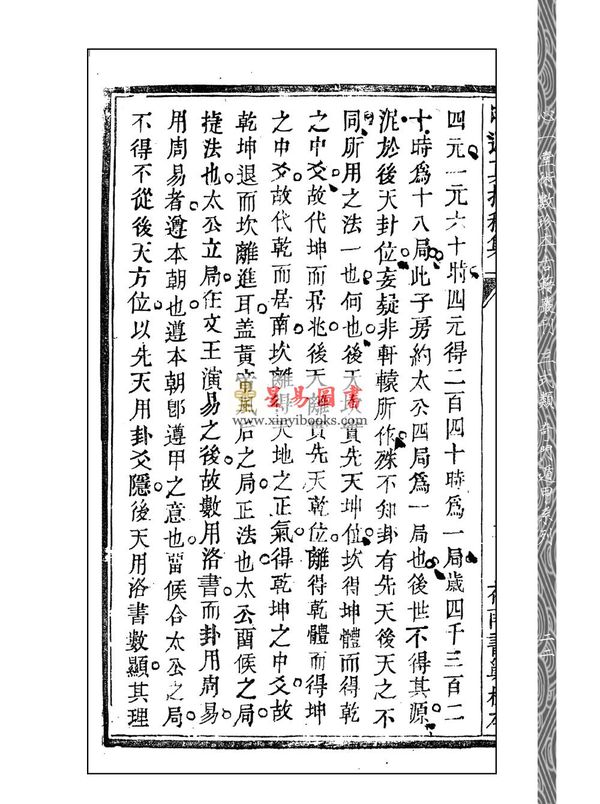 四元一元六十時四元得二百四十時爲一局歲四千三百二
十時爲十八局此子房約太公四局爲一局也後世不得其源
泥於後天卦位妄疑非軒轅所作殊不知卦有先天後天之不
同所用之法一也何也後天坎實先天坤位坎得坤體而得乾
之中爻故代坤而居北後天離實先天乾位離得乾體而得坤
之中爻故代乾而居南坎離得天地之正氣得乾坤之中爻故
乾坤退而坎離進耳盖黃帝風后之局正法也太公留侯之局
捷法也太公立局在文王演易之後故數用洛書而卦用周易
用周易者遵本朝也遵本朝卽遵甲之意也留候合太公之局
不得不從後天方位以先天用卦爻隱後天用洛書數顯其理
星易圖書
www.xinyibooks.com
心一堂術數珍本古籍叢刊 三式類 奇門遁甲系列
二二